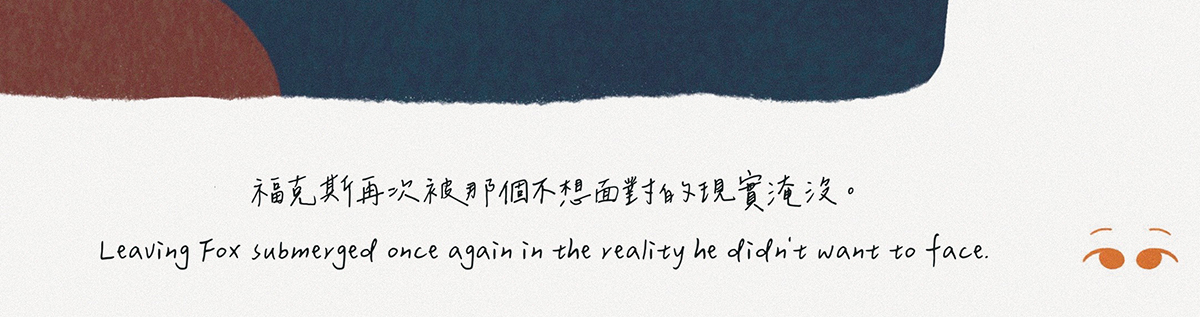 福克斯再次被那個不想面對的現實淹沒。
Leaving Fox submerged once again in the reality he didn't want to face.